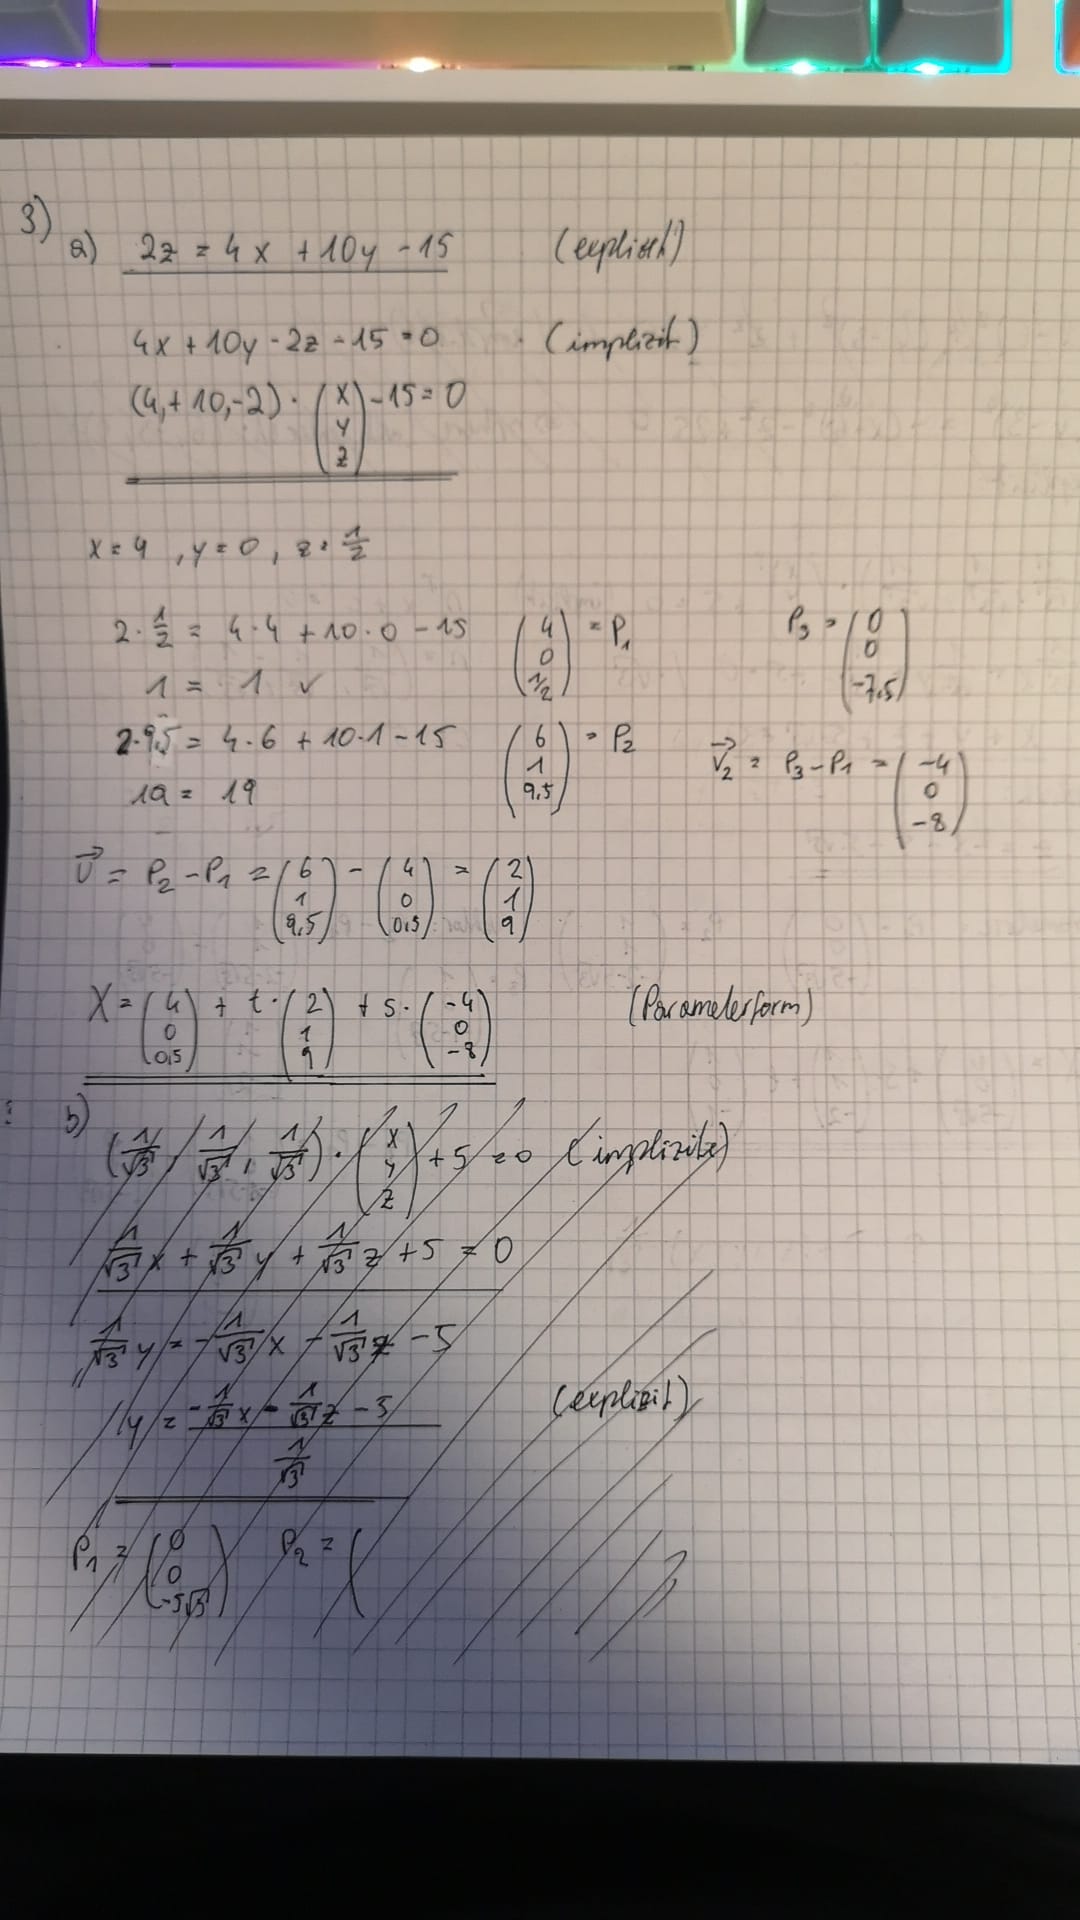 3)
a) 2z = 4x + 10y - 15 (explizit)
4x + 10y - 2z - 15 = 0 (implizit)
(4, + 10, -2) · (x y z) - 15 = 0
x = 4 , y = 0 , z = 1/2
2 · 1/2 = 4 · 4 + 10 · 0 - 15 (4 0 1/2) = P1 P3 = (0 0 -7,5)
1 = 1 ✓
2 · 9,5 = 4 · 6 + 10 · 1 - 15 (6 1 9,5) = P2
19 = 19
V2 = P3 - P1 = (-4 0 -8)
V = P2 - P1 = (6 1 9,5) - (4 0 0,5) = (2 1 9)
X = (4 0 0,5) + t · (2 1 9) + s · (-4 0 -8) (Parameterform)
b)
(1/√3, 1/√3, 1/√3) · (x y z) + 5 = 0 (implizite)
1/√3 x + 1/√3 y + 1/√3 z + 5 = 0
1/√3 y = - 1/√3 x - 1/√3 z - 5
y = (- 1/√3 x - 1/√3 z - 5) / (1/√3) (explizit)
P1 = (0 0 -5√3) P2 = (